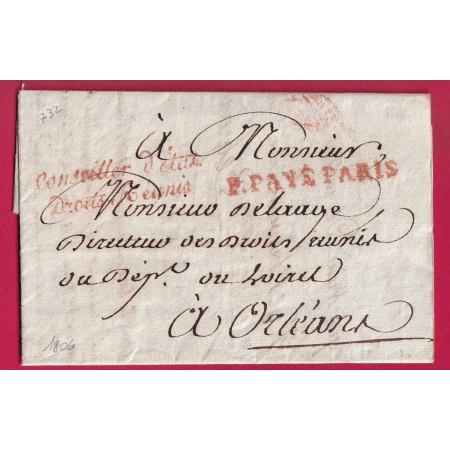 732
à Monsieur
Conseiller d'État
Droits Réunis
P.PAYÉ PARIS
Monsieur Delauge
Directeur des Droits réunis
du Dépt. du Loiret
à Orléans
1806